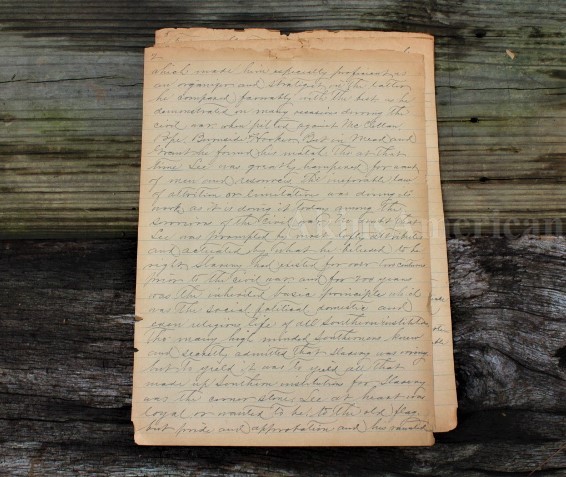 2
which made him especially proficient as
an organizer and strategist in the latter
he compared favorably with the best as he
demonstrated on many occasions during the
civil war when pitted against McClellan
Pope Burnside Hooker But in Mead and
Grant he found his match tho at that
time Lee was greatly hampered for want
of men and resources The inexorable law
of attrition or limitation was doing its
work as it is doing it today among the
survivors of the Civil war
Lee was prompted by
and activated by what he believed to be
right Slavery had existed for over two centuries
prior to the civil war and for 200 years
was the inherited basic principle
was the social political domestic and
even religious life of all Southern institutions
tho many high minded Southerners knew
and secretly admitted that Slavery was wrong
but to yield it was to yield all that
made up Southern institutions for Slavery
was the corner stone Lee at heart was
loyal or wanted to be to the old flag
but pride and approbation and his exalted
A Rustic American